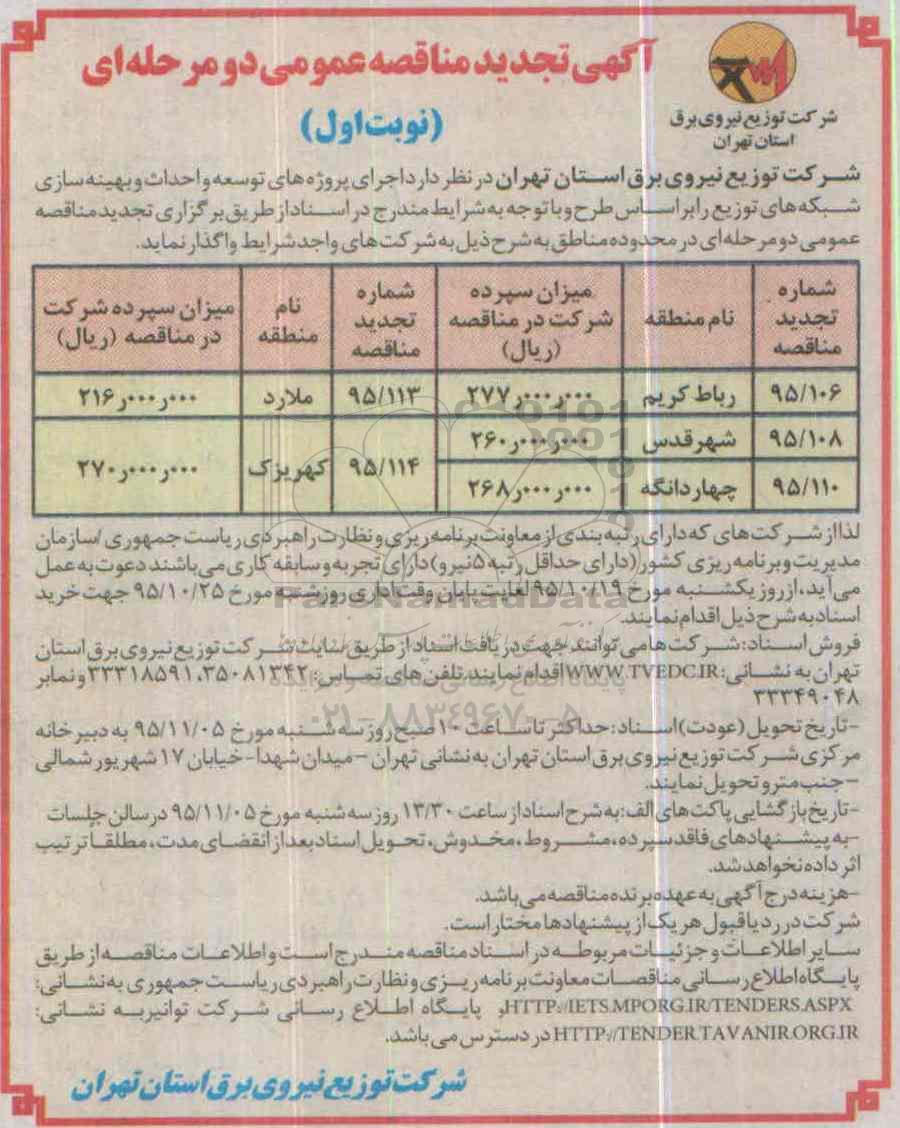 آگهی تجدید مناقصه عمومی دو مرحله ای
(نوبت اول)
شرکت توزیع نیروی برق
استان تهران
شرکت توزیع نیروی برق استان تهران در نظر دارد اجرای پروژه های توسعه و احداث و بهینه سازی
شبکه های توزیع را بر اساس طرح و با توجه به شرایط مندرج در اسناد از طریق برگزاری تجدید مناقصه
عمومی دو مرحله ای در محدوده مناطق به شرح ذیل به شرکت های واجد شرایط واگذار نماید.
شماره تجدید مناقصه | نام منطقه | میزان سپرده شرکت در مناقصه (ریال) | شماره تجدید مناقصه | نام منطقه | میزان سپرده شرکت در مناقصه (ریال)
۹۵/۱۰۶ | رباط کریم | ۲۷۷ر۰۰۰ر۰۰۰ | ۹۵/۱۱۳ | ملارد | ۲۱۶ر۰۰۰ر۰۰۰
۹۵/۱۰۸ | شهر قدس | ۲۶۰ر۰۰۰ر۰۰۰ | ۹۵/۱۱۴ | کهریزک | ۲۷۰ر۰۰۰ر۰۰۰
۹۵/۱۱۰ | چهاردانگه | ۲۶۸ر۰۰۰ر۰۰۰
لذا از شرکت های که دارای رتبه بندی از معاونت برنامه ریزی و نظارت راهبردی ریاست جمهوری /سازمان
مدیریت و برنامه ریزی کشور (دارای حداقل رتبه ۵ نیرو) دارای تجربه و سابقه کاری می باشند دعوت به عمل
می آید، از روز یکشنبه مورخ ۹۵/۱۰/۱۹ لغایت پایان وقت اداری روز شنبه مورخ ۹۵/۱۰/۲۵ جهت خرید
اسناد به شرح ذیل اقدام نمایند.
فروش اسناد: شرکت ها می توانند جهت دریافت اسناد از طریق سایت شرکت توزیع نیروی برق استان
تهران به نشانی: WWW.TVEDC.IR اقدام نمایند. تلفن های تماس: ۳۵۰۸۱۳۴۲، ۳۳۳۱۸۵۹۱ و نمابر
۳۳۳۴۹۰۴۸
-تاریخ تحویل (عودت) اسناد: حداکثر تا ساعت ۱۰ صبح روز سه شنبه مورخ ۹۵/۱۱/۰۵ به دبیرخانه
مرکزی شرکت توزیع نیروی برق استان تهران به نشانی تهران - میدان شهدا - خیابان ۱۷ شهریور شمالی
- جنب مترو تحویل نمایند.
-تاریخ بازگشایی پاکت های الف: به شرح اسناد از ساعت ۱۳/۳۰ روز سه شنبه مورخ ۹۵/۱۱/۰۵ در سالن جلسات
-به پیشنهادهای فاقد سپرده، مشروط، مخدوش، تحویل اسناد بعد از انقضای مدت، مطلقا ترتیب
اثر داده نخواهد شد.
-هزینه درج آگهی به عهده برنده مناقصه می باشد.
شرکت در رد یا قبول هر یک از پیشنهادها مختار است.
سایر اطلاعات و جزئیات مربوطه در اسناد مناقصه مندرج است و اطلاعات مناقصه از طریق
پایگاه اطلاع رسانی مناقصات معاونت برنامه ریزی و نظارت راهبردی ریاست جمهوری به نشانی:
HTTP://IETS.MPORG.IR/TENDERS.ASPX و پایگاه اطلاع رسانی شرکت توانیر به نشانی:
HTTP://TENDER.TAVANIR.ORG.IR در دسترس می باشد.
شرکت توزیع نیروی برق استان تهران
ParsNamadData
۰۲۱-۸۸۳۴۹۶۷۰-۵